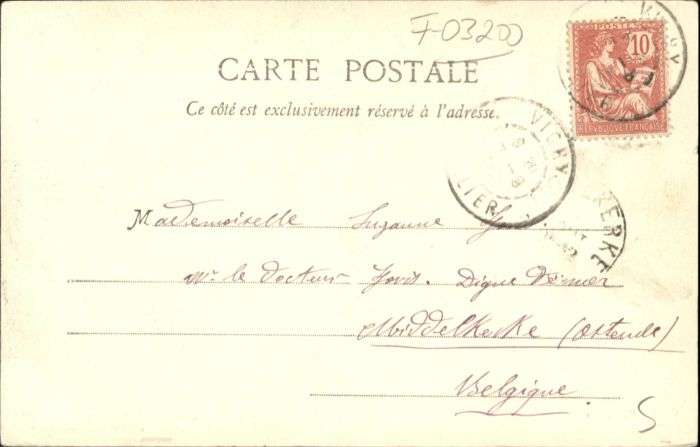 F-03200
CARTE POSTALE
Ce côté est exclusivement réservé à l'adresse.
POSTES
10
REPVBLIQVE FRANÇAISE
VICHY
VICHY
ALLIER
KERKE
Mademoiselle Suzanne
Mr le Docteur Digue
Middelkerke (Ostende)
Belgique
5